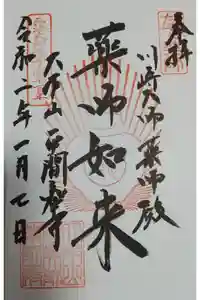 奉拝
川崎大師薬師殿
薬师如来
大本山平間寺
令和二年一月七日